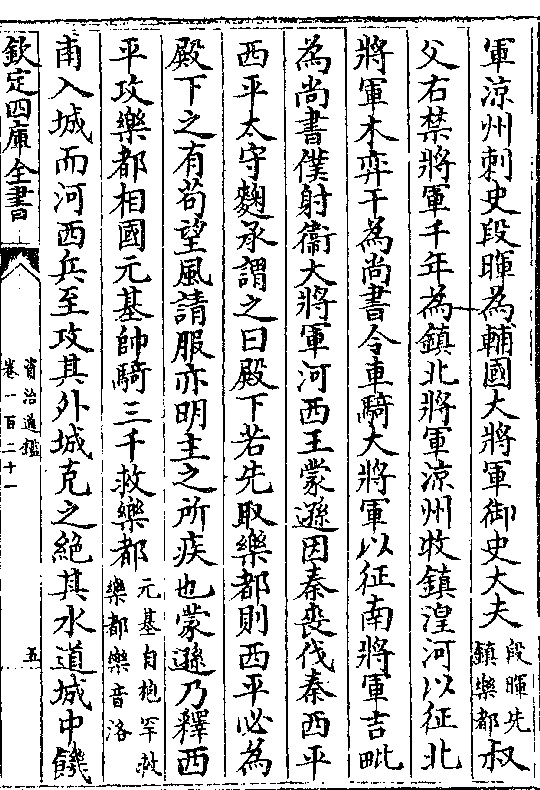 軍涼州刺史段暉為輔國大將軍御史大夫段暉先鎮樂都叔
父右禁將軍千年為鎮北將軍涼州牧鎮湟河以征北
將軍木弈干為尚書令車騎大將軍以征南將軍吉毗
為尚書僕射衛大將軍河西王蒙遜因秦喪伐秦西平
西平太守麴承謂之曰殿下若先取樂都則西平必為
殿下之有茍望風請服亦明主之所疾也蒙遜乃釋西
平攻樂都相國元基帥騎三千救樂都元基自枹罕救樂都樂音洛
甫入城而河西兵至攻其外城克之絶其水道城中饑
欽定四庫全書
資治通鑑
卷一百二十一
五